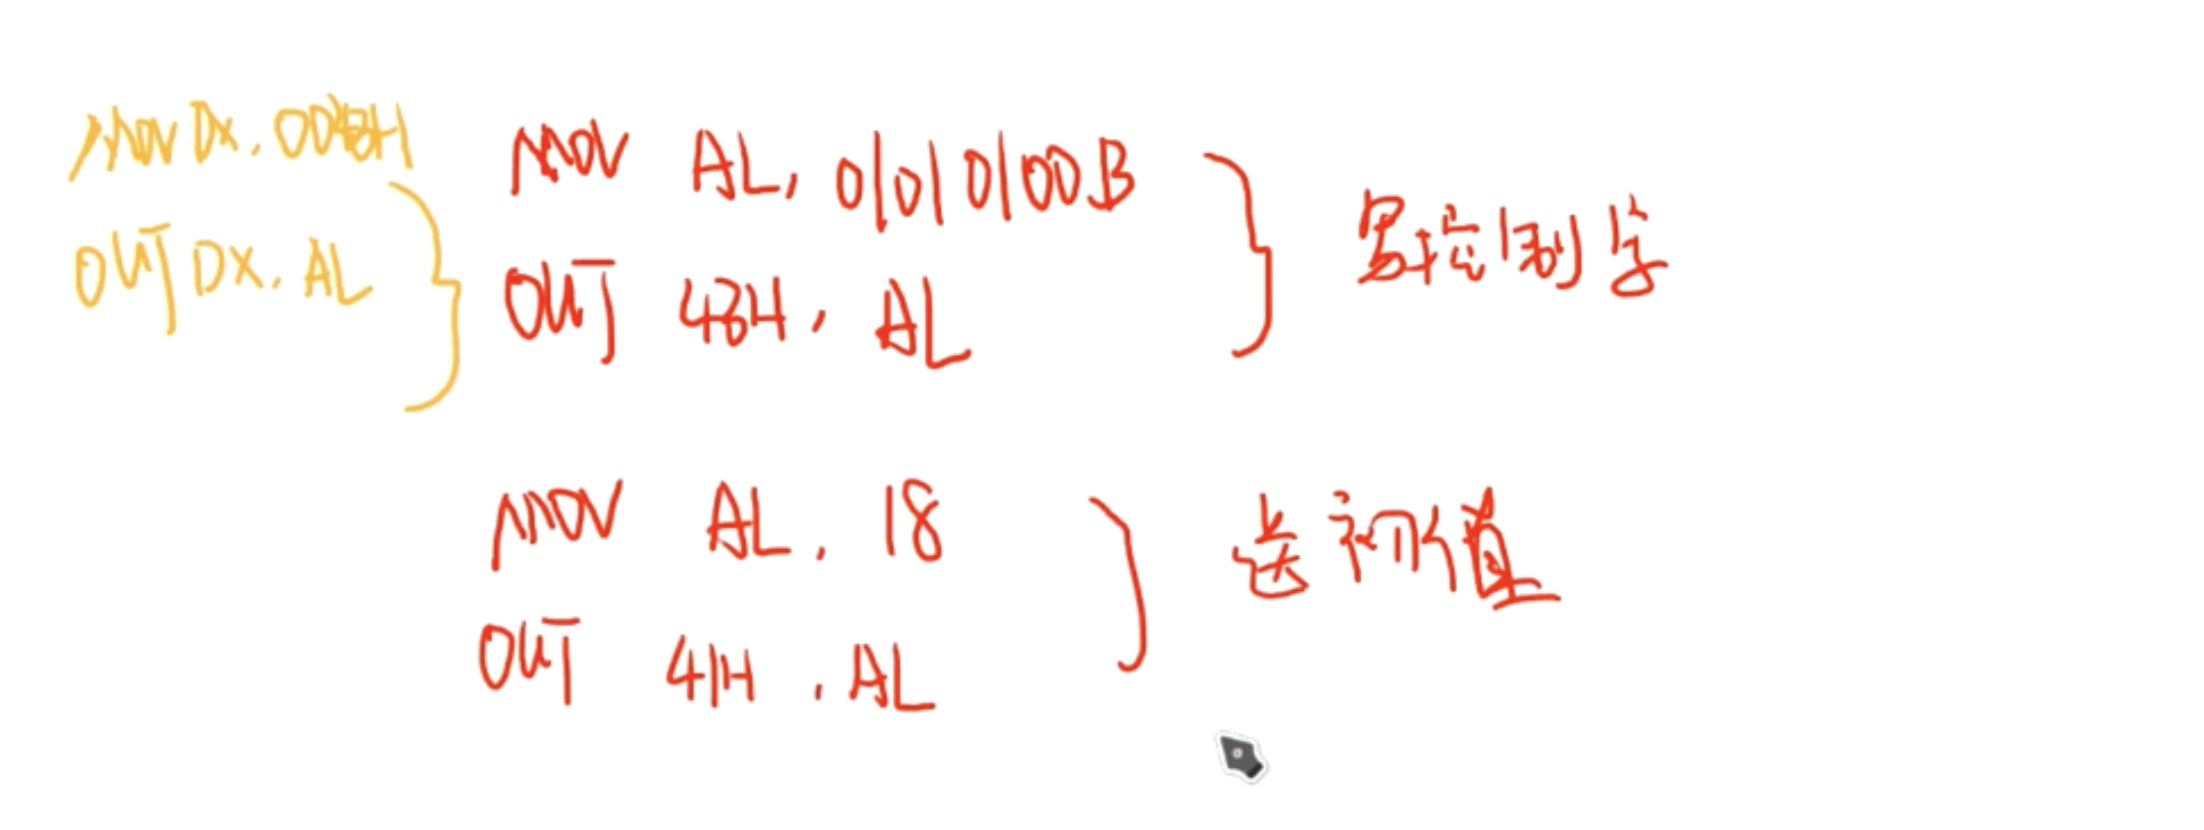 MOV DX, 0043H
OUT DX, AL
MOV AL, 01010100B
OUT 43H, AL
写控制字
MOV AL, 18
OUT 41H, AL
送初值